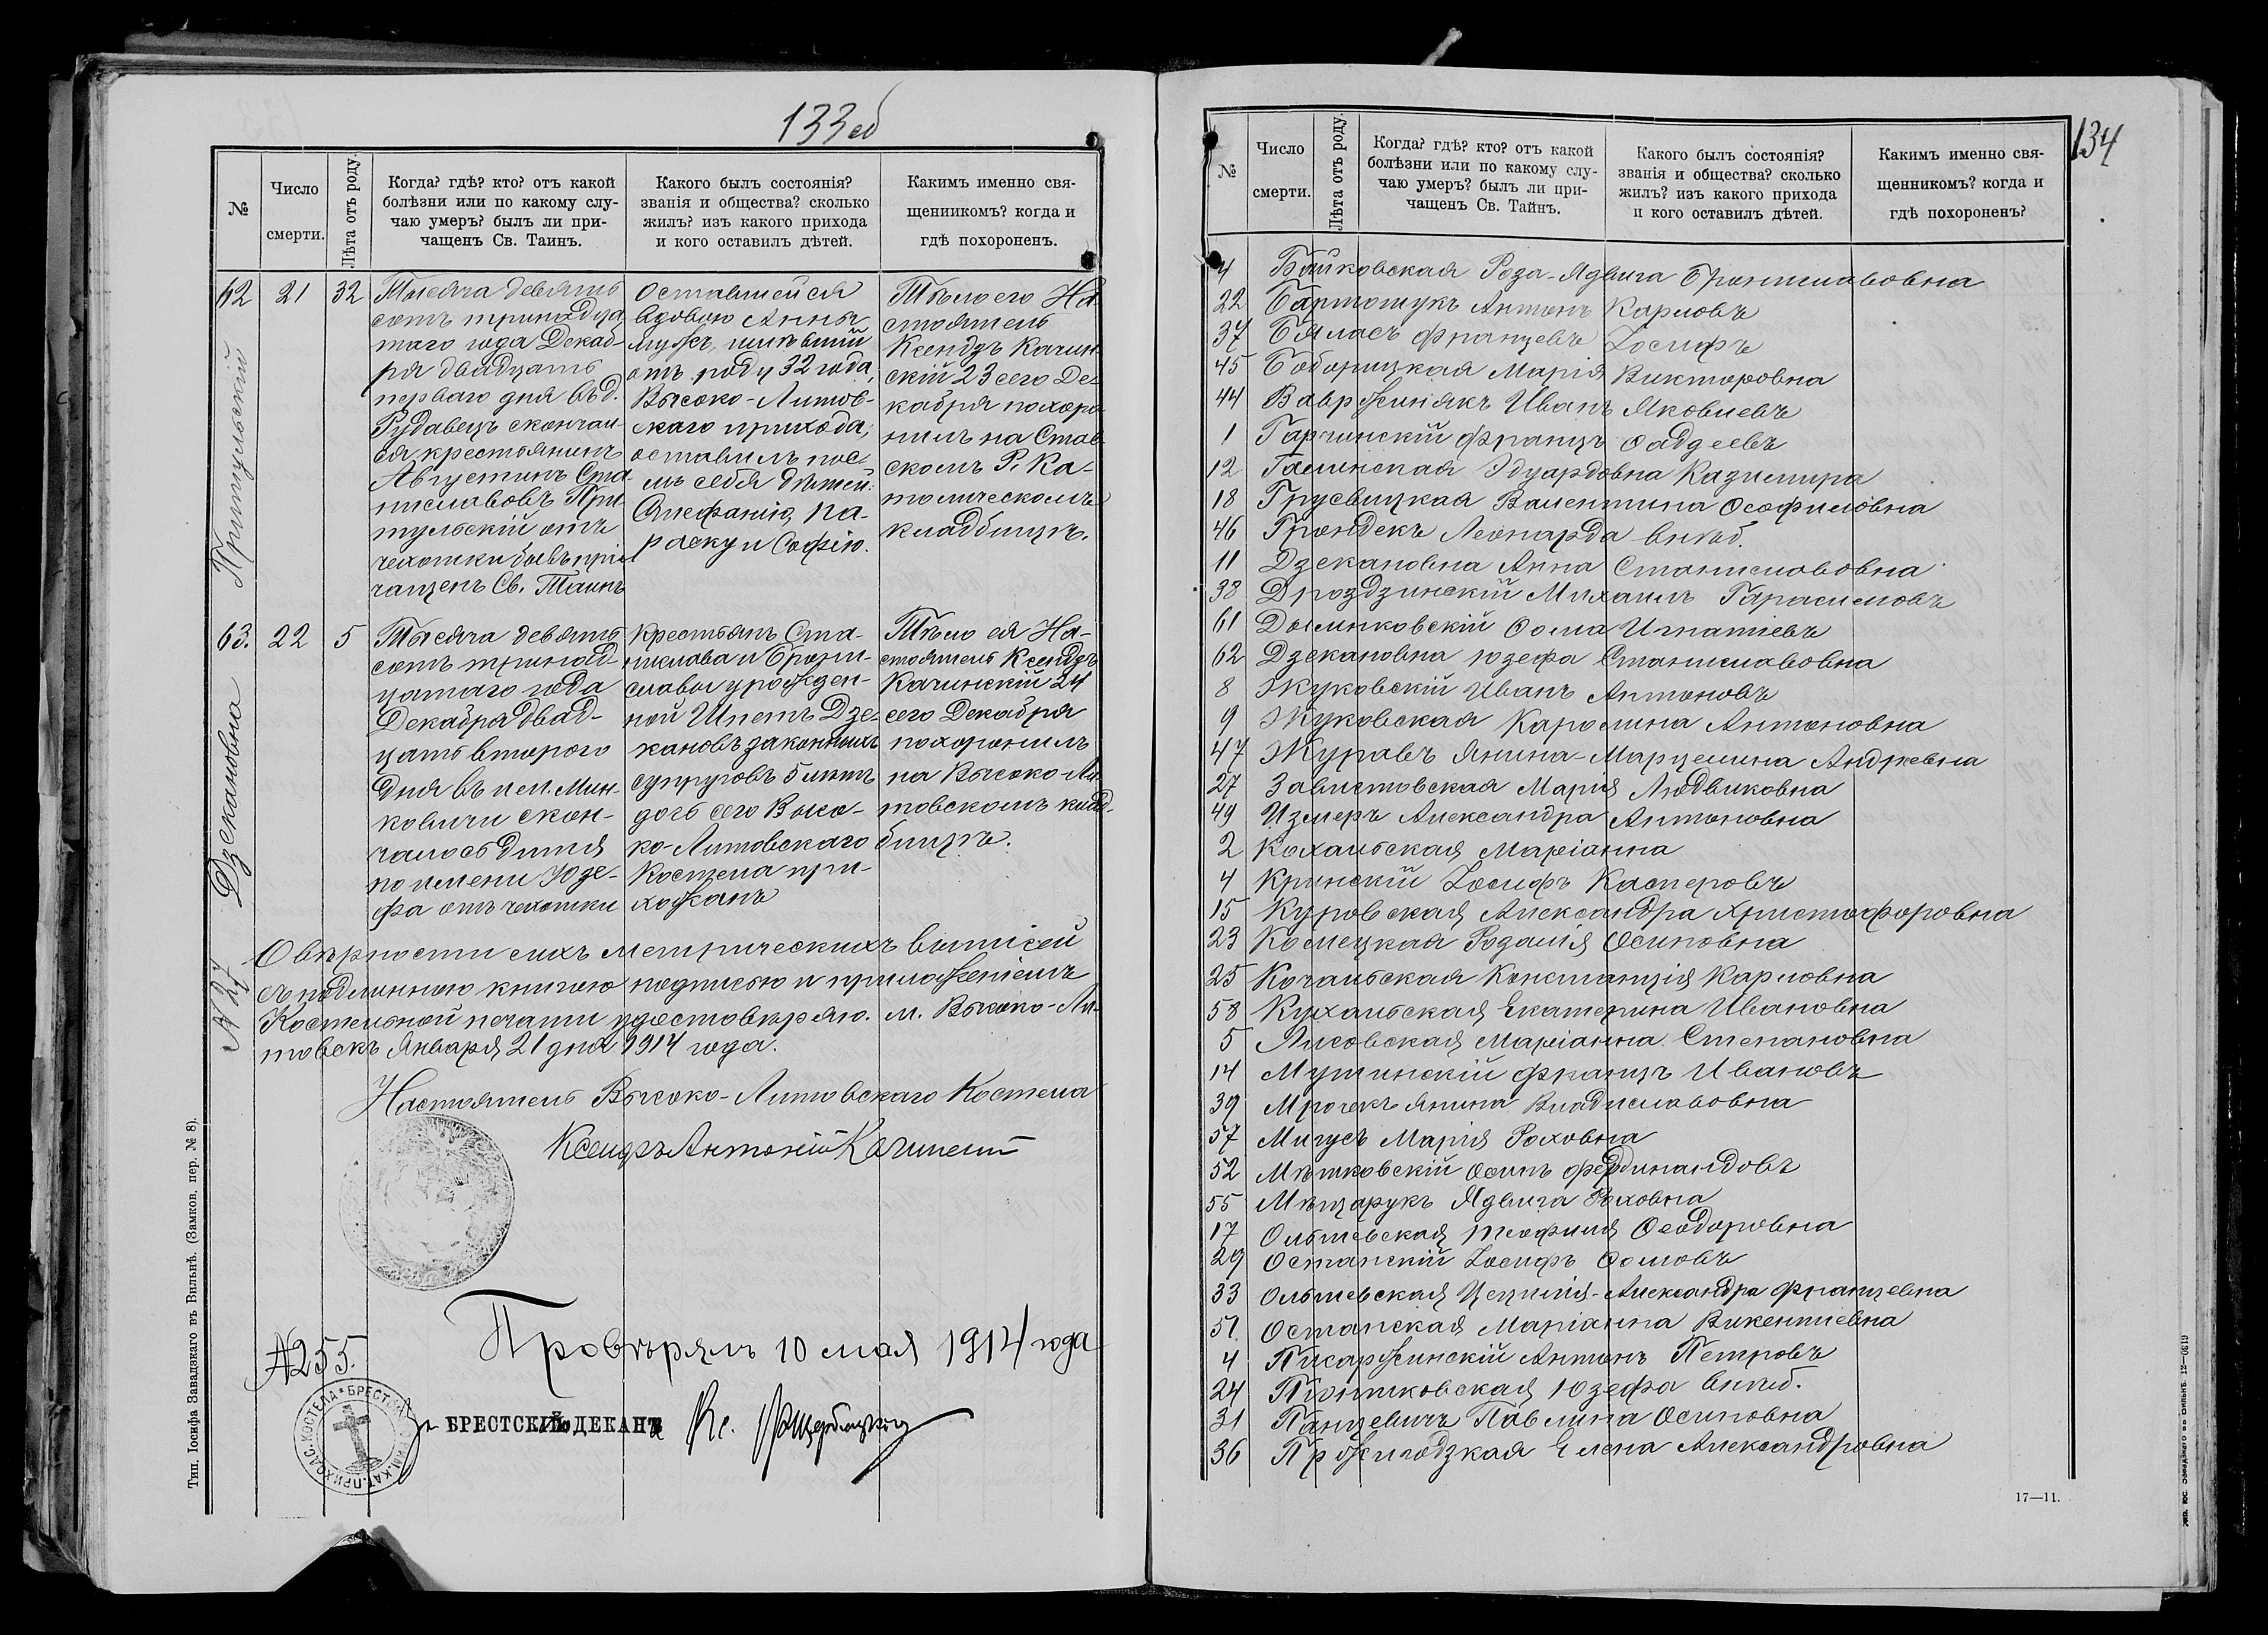 133об
№
Число
смерти.
Лѣта отъ роду.
Когда? гдѣ? кто? отъ какой
болѣзни или по какому слу-
чаю умеръ? былъ ли при-
чащенъ Св. Таинъ.
Какого былъ состоянія?
званія и общества? сколько
жилъ? изъ какого прихода
и кого оставилъ дѣтей.
Какимъ именно свя-
щенникомъ? когда и
гдѣ похороненъ.
Притульскій
62
21
32
Тысяча девять
сотъ тринадца
таго года Декаб-
ря двадцать
перваго дня въ д.
Рудавецъ скончал-
ся крестьянинъ
Августинъ Ста-
ниславовъ При-
тульскій отъ
чахотки бывъ при
чащенъ Св. Таинъ
Оставшейся
вдовою Анны
мужъ, имѣвший
отъ роду 32 года,
Высоко-Литов-
скаго прихода,
оставилъ пос-
лѣ себя дѣтей:
Стефанію, Па-
раску и Софію.
Тѣло его На-
стоятель
Ксендзъ Качин-
скій 23 сего Де-
кабря похоро-
нилъ на Став-
скомъ Р. Ка-
толическомъ
кладбищѣ.
Дзекановна
63.
22
5
Тысяча девять
сотъ тринад-
цатаго года
Декабря двад-
цать второго
дня въ им. Мин-
ковичи скон-
чалось дитя
по имени Юзе-
фа отъ чахотки
Крестьянъ Ста-
нислава и Брони-
славы урожден-
ной Шпетъ Дзе-
кановъ законныхъ
супруговъ 5 лѣтъ
дочь сего Высо-
ко-Литовскаго
Костела при-
хожанъ
Тѣло ея На-
стоятель Ксендзъ
Качинскій 24
сего Декабря
похоронилъ
на Высоко-Ли-
товскомъ клад-
бищѣ.
О вѣрности сихъ метрическихъ выписей
съ подлинною книгою подписью и приложеніемъ
Костельной печати удостовѣряю. м. Высоко-Ли-
товскъ Января 21 дня 1914 года.
№ 27
Настоятель Высоко-Литовскаго Костела
Ксендзъ Антоній Качинскій
Провѣрялъ 10 мая 1914 года
№255.
БРЕСТСКІЙ ДЕКАНЪ Кс.
Тип. Іосифа Завадзкаго въ Вильнѣ. (Замков. пер. № 8).
134
№
Число
смерти.
Лѣта отъ роду.
Когда? гдѣ? кто? отъ какой
болѣзни или по какому слу-
чаю умеръ? былъ ли при-
чащенъ Св. Тайнъ.
Какого былъ состоянія?
званія и общества? сколько
жилъ? изъ какого прихода
и кого оставилъ дѣтей.
Какимъ именно свя-
щенникомъ? когда и
гдѣ похороненъ?
4 Бойковская Роза-Ядвига Брониславовна
22 Бартошукъ Антонъ Карловъ
37 Бяласъ Францевъ Іосифъ
45 Боборицкая Марія Викторовна
44 Вавржинякъ Иванъ Яковлевъ
1 Гарчинскій Францъ Фаддеевъ
12 Галинская Эдуардовна Казимира
18 Грусвицкая Валентина Феофиловна
46 Грондекъ Леонарда внѣб.
11 Дзекановна Анна Станиславовна
38 Дроздзинскій Михаилъ Гарасимовъ
61 Дылинковскій Фома Игнатіевъ
62 Дзекановна Юзефа Станиславовна
8 Жуковскій Иванъ Антоновъ
9 Жуковская Каролина Антоновна
47 Журавъ Янина-Марцелина Андревна
27 Завистовская Марія Людвиковна
49 Измеръ Александра Антоновна
2 Кохальская Маріанна
4 Кринскій Іосифъ Касперовъ
15 Куровская Александра Христофоровна
23 Комецкая Розалія Осиповна
25 Кочальская Констанція Карловна
58 Кухальская Екатерина Ивановна
5 Лисовская Маріанна Степановна
14 Мушинскій Францъ Ивановъ
39 Мрочекъ Янина Владиславовна
57 Мигусъ Марія Роховна
52 Мѣшковскій Осипъ Фердинандовъ
55 Мѣщарукъ Ядвига Роховна
17 Ольшевская Теофиля Феодоровна
29 Останскій Іосифъ Фомовъ
33 Ольшевская Цецилія-Александра Францевна
51. Останская Маріанна Викентіевна
4 Пикаржинскій Антонъ Петровъ
24 Піонтковская Юзефа внѣб.
31 Панцевичъ Павлина Осиповна
36 Пржигодзкая Елена Александровна
17—11.